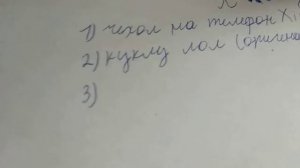 1) чехол на телефон Xi
2) куклу лол (оригина
3)